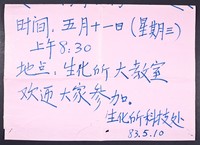 时间:五月十一日(星期三)
上午8:30
地点:生化所大教室
欢迎大家参加。
生化所科技处
83.5.10